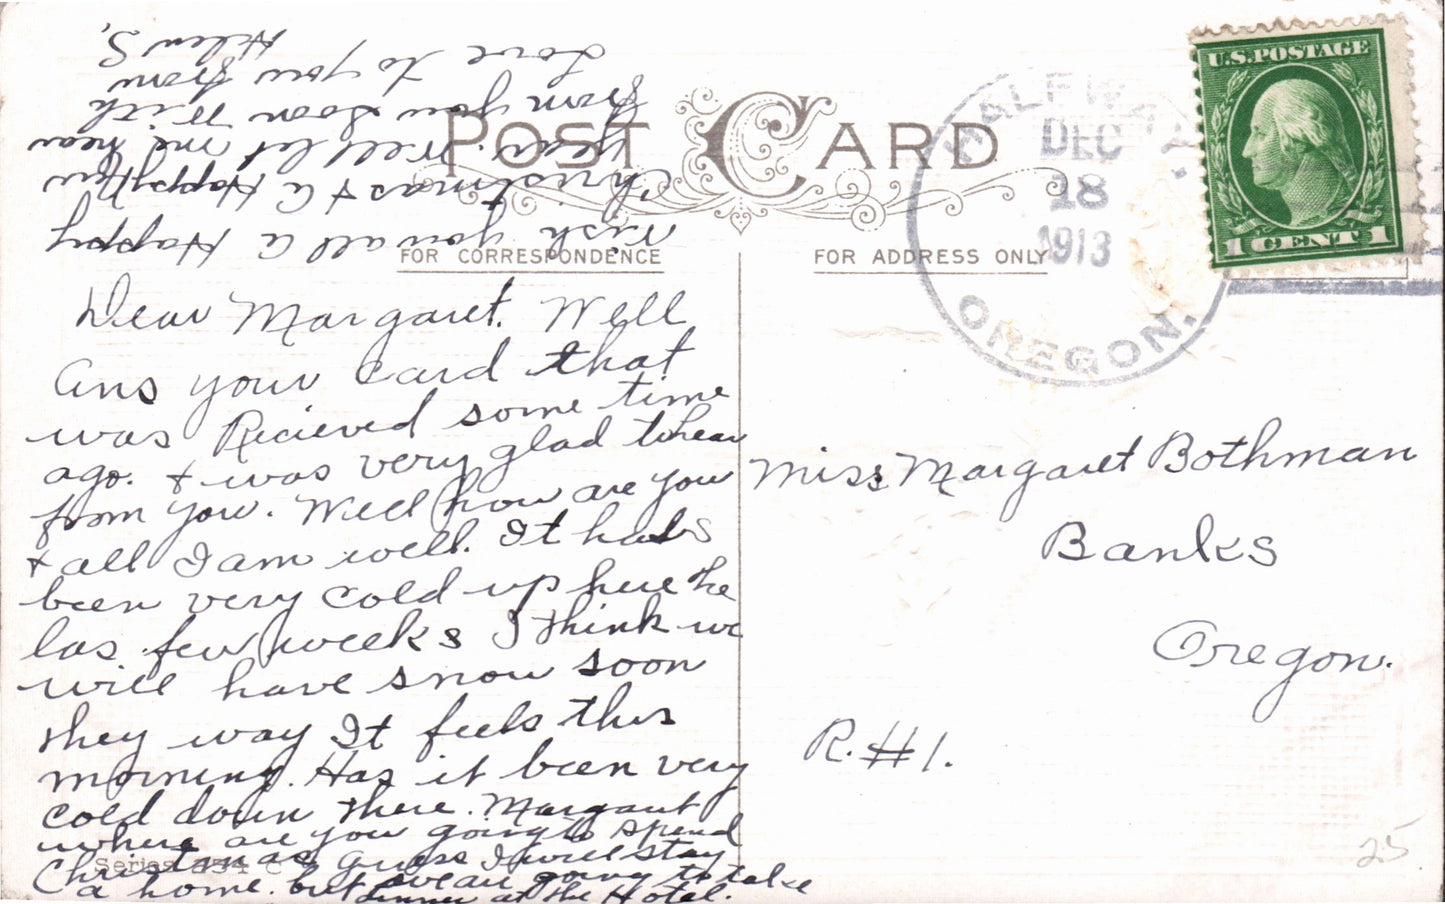 POST CARD
FOR CORRESPONDENCE
FOR ADDRESS ONLY
HALFWAY
DEC
18
1913
OREGON.
U.S. POSTAGE
1 CENT 1
Dear Margaret. Well
ans your card that
was Recieved some time
ago. & was very glad to hear
from you. Well how are you
& all I am well. It has
been very cold up here the
las few weeks I think we
will have snow soon
they way It feels this
morning. Has it been very
cold down there. Margaret
where are you going to spend
Christmas guess I will stay
a home. but we are going to take
dinner at the Hotel.
Wish you all a Happy
Christmas & a Happy New
Year. Well let me hear
from you soon With
Love to you from
Helen S,
Miss Margaret Bothman
Banks
Oregon.
R. #1.
Series
25